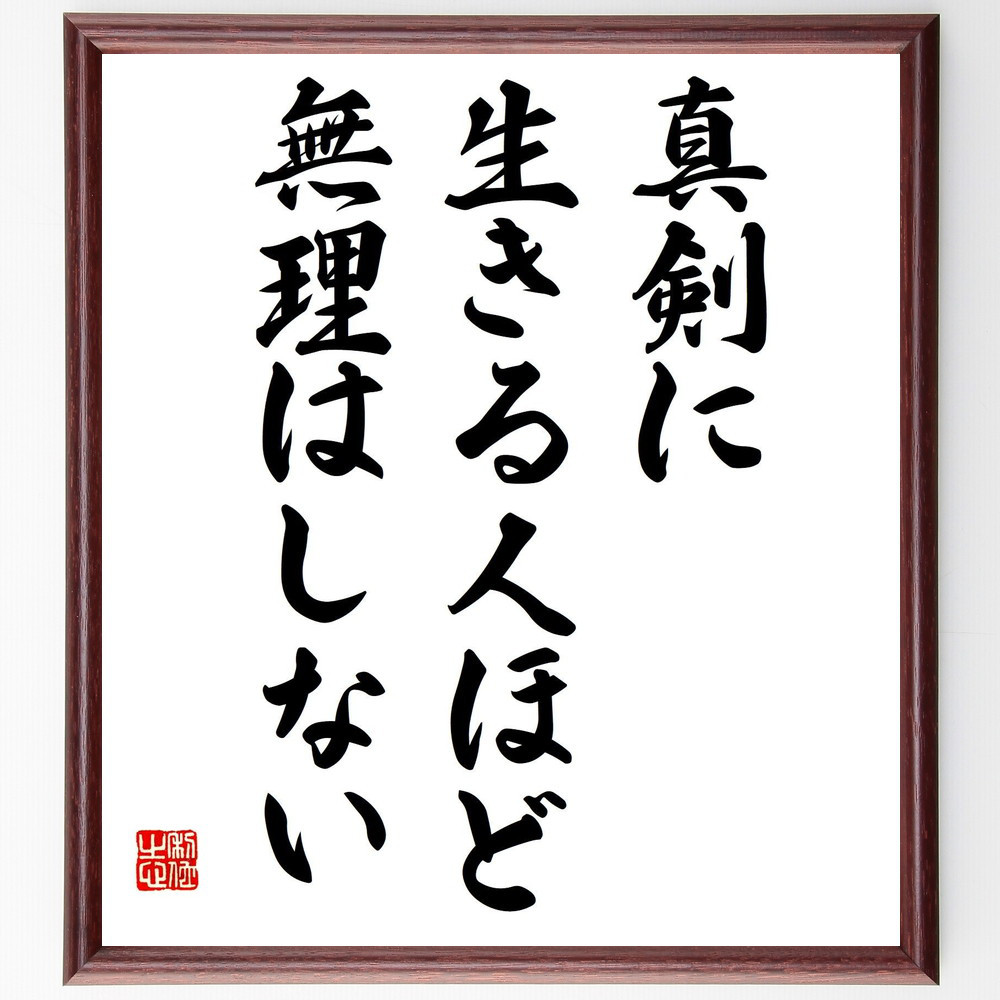 真剣に
生きる人ほど
無理はしない